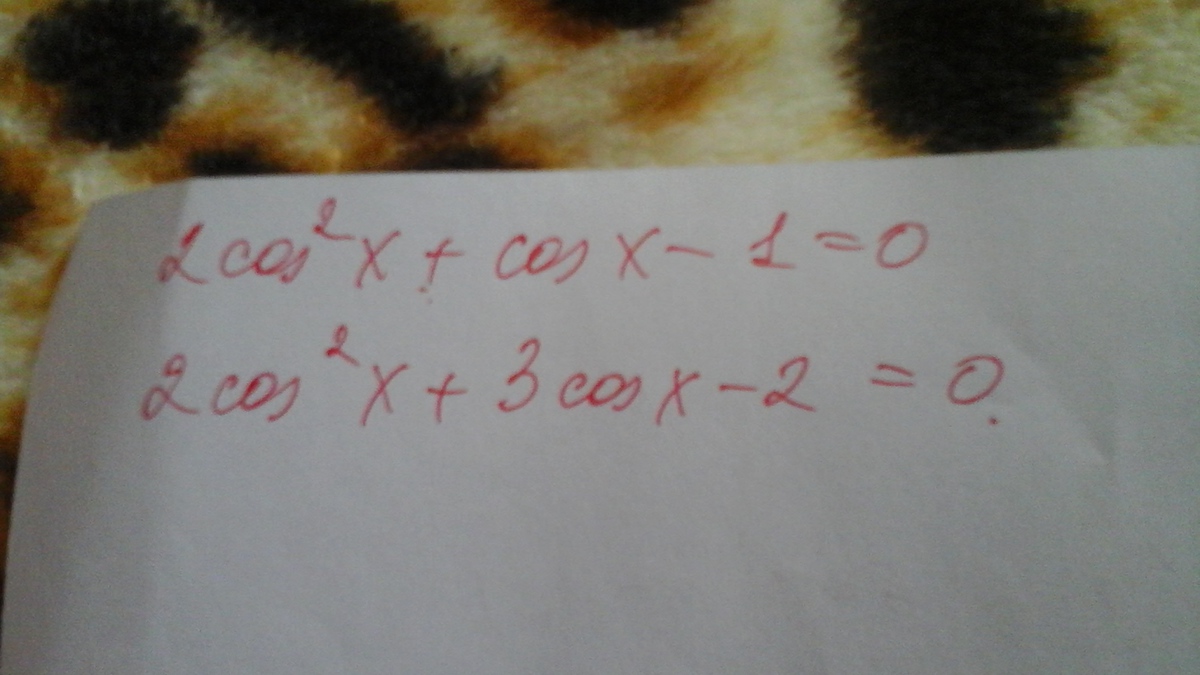 2cos²x + cos x - 1 = 0
2cos²x + 3cosx - 2 = 0.